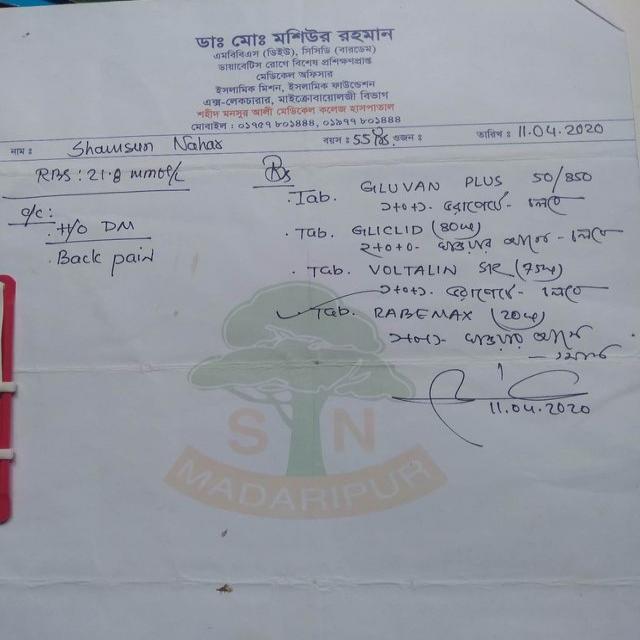 ডাঃ মোঃ মশিউর রহমান
এমবিবিএস (ডিইউ), সিসিডি (বারডেম)
ডায়াবেটিস রোগে বিশেষ প্রশিক্ষণপ্রাপ্ত
মেডিকেল অফিসার
ইসলামিক মিশন, ইসলামিক ফাউন্ডেশন
এক্স-লেকচারার, মাইক্রোবায়োলজী বিভাগ
শহীদ মনসুর আলী মেডিকেল কলেজ হাসপাতাল
মোবাইল : ০১৭৫৭ ৮০১৪৪৪, ০১৯৭৭ ৮০১৪৪৪
নাম : Shamsun Nahar বয়স : 55 ওজন : তারিখ : 11.04.2020
RBS : 21.8 mmol/L
O/C :
. H/O DM
. Back pain
Rx
. Tab. GLUVAN PLUS 50/850
১+০+১
. Tab. GLICLID (80mg)
২+০+০
. Tab. VOLTALIN SR (75mg)
১+০+১
Tab. RABEMAX (20mg)
১+০+১
11.04.2020
S N
MADARIPUR